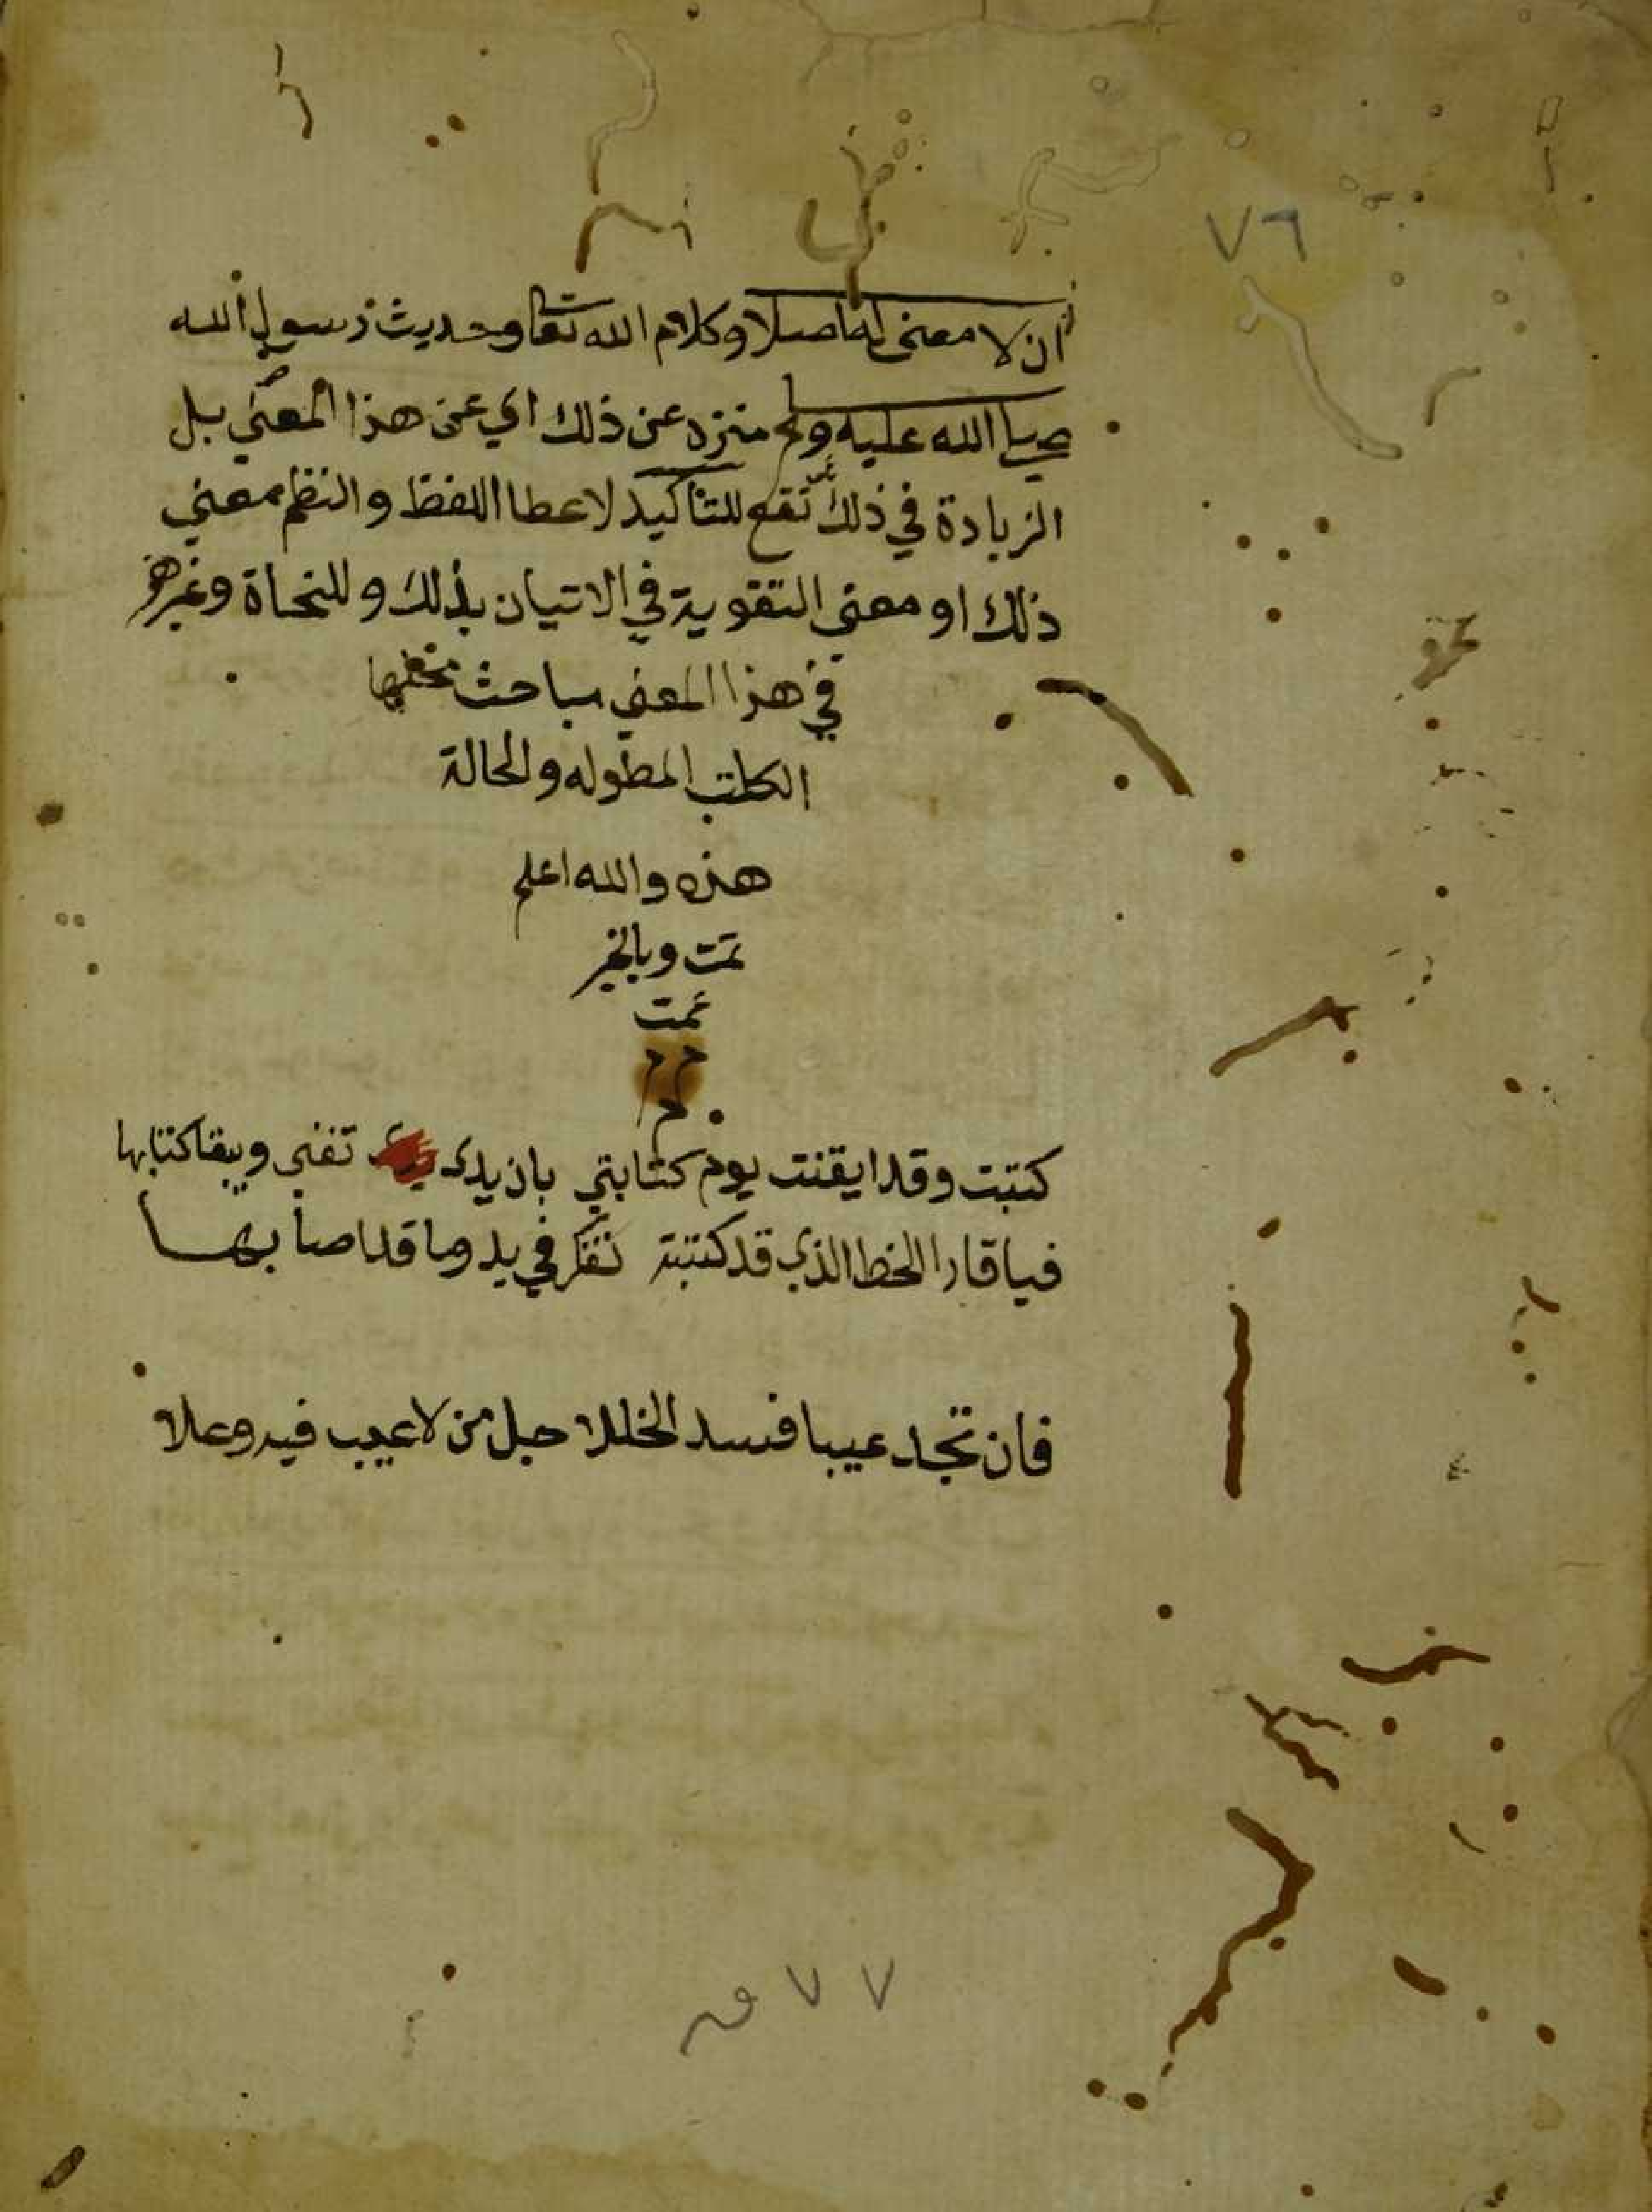 ٧٦
ان لا معنى لها صلا وكلام الله تعا وحديث رسول الله
صلى الله عليه ولم منزه عن ذلك اي عن هذا المعنى بل
الزيادة في ذلك تقع للتاكيد لاعطا اللفظ والنظم معنى
ذلك او معنى التقوية في الاتيان بذلك وللنحاة وغيرهم
في هذا المعنى مباحث محلها
الكتب المطوله والحالة
هذه والله اعلم
تمت وبالخير
تمت
كتبت وقد ايقنت يوم كتابتي بان يدى تفنى ويبقا كتابها
فيا قارا الخط الذي قد كتبته تفكر في يد وما قد اصابها
فان تجد عيبا فسد الخللا جل من لا عيب فيه وعلا
٧٧ ق